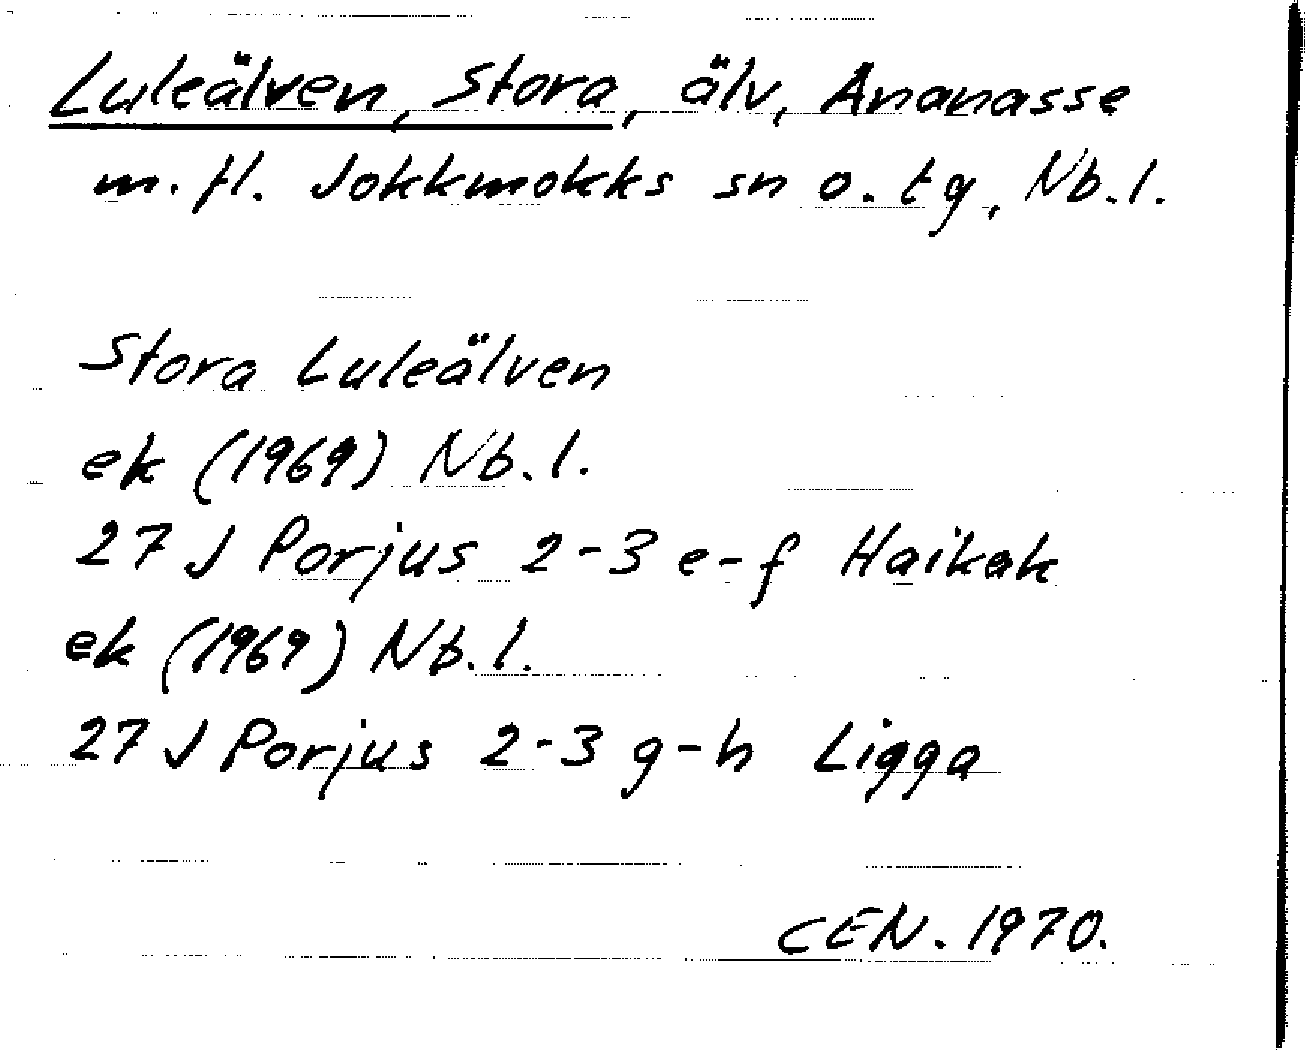 Luleälven, Stora, älv, Ananasse
m. fl. Jokkmokks sn o. tg, Nb. l.
Stora Luleälven
ek (1969) Nb. l.
27 J Porjus 2-3 e-f Haikak
ek (1969) Nb. l.
27 J Porjus 2-3 g-h Ligga
CEN. 1970.